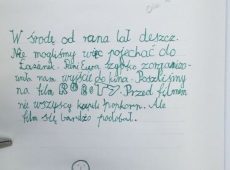 W środę od rana lał deszcz.
Nie mogliśmy więc pojechać do
Łazienek. Pani Ewa szybko zorganizo-
wała nam wyjście do kina. Poszliśmy
na film ROBOTY. Przed filmem
wszyscy kupili popcorn. Ale
film się bardzo podobał.